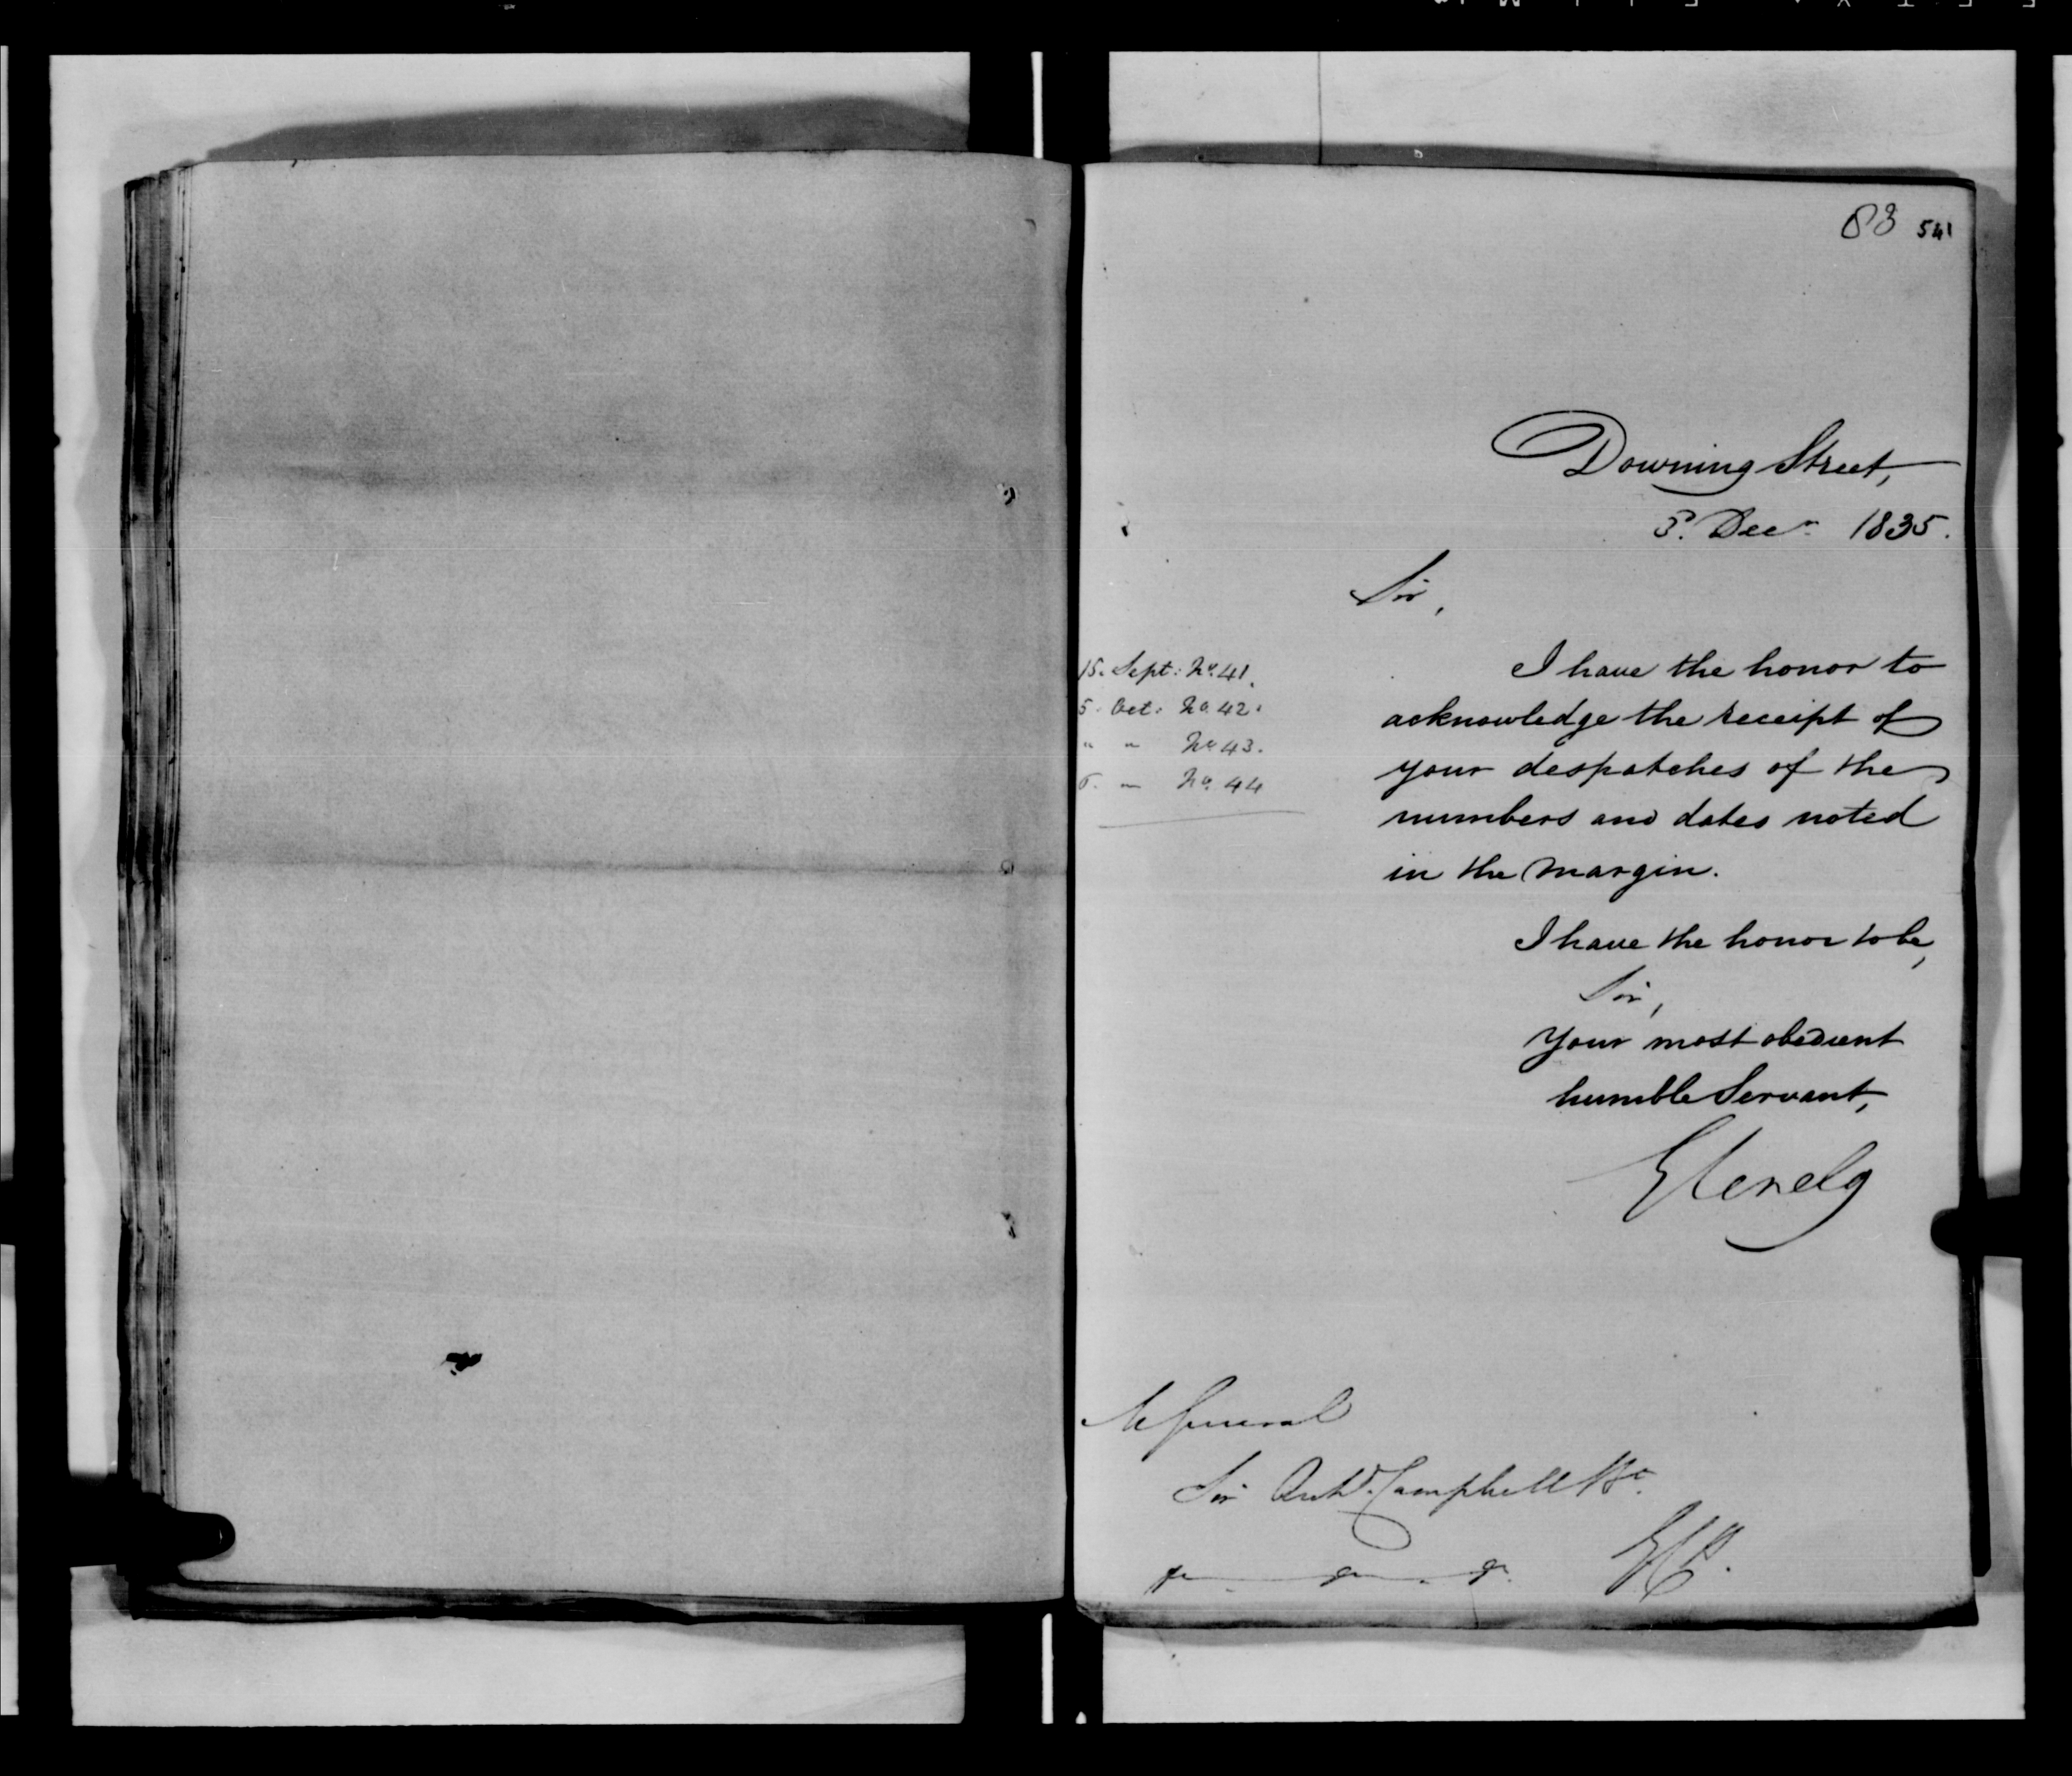 83 541
Downing Street,
5. Decr. 1835.
Sir,
15. Sept: No. 41.
5. Oct: No. 42.
" " No. 43.
" No. 44
I have the honor to
acknowledge the receipt of
your despatches of the
numbers and dates noted
in the margin.
I have the honor to be,
Sir,
Your most obedient
humble Servant,
Glenelg
M General
Sir Archd. Campbell Bt.